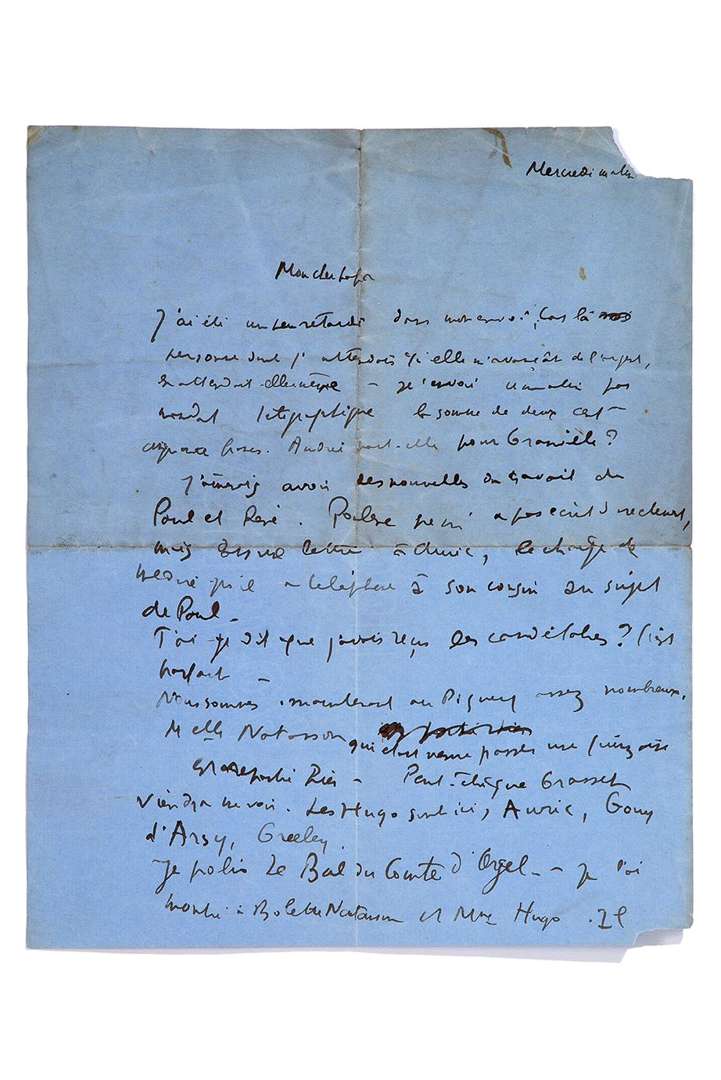 Mercredi matin
Mon cher papa
J'ai été un peu retardé dans mon envoi, car la
personne dont j'attendais qu'elle m'avançât de l'argent,
en attendait elle-même — je t'envoie ce matin par
mandat télégraphique la somme de deux cent
cinquante francs. André part-elle pour Granville?
J'aimerais avoir des nouvelles du travail de
Paul et René. Poulenc ne m'a pas écrit directement,
mais dans une lettre à Auric, le charge de
me dire qu'il a téléphoné à son cousin au sujet
de Paul —
T'ai-je dit que j'avais reçu les candélabres? C'est
parfait —
Nous sommes maintenant au Piquey assez nombreux.
Melle Natanson qui est venue passer une quinzaine
est repartie hier — Peut-être que Grasset
viendra me voir. Les Hugo sont ici, Auric, Gouy
d'Arsy, Greeley.
Je polis Le Bal du Comte d'Orgel — je l'ai
montré à Bolette Natanson et Mme Hugo. Il